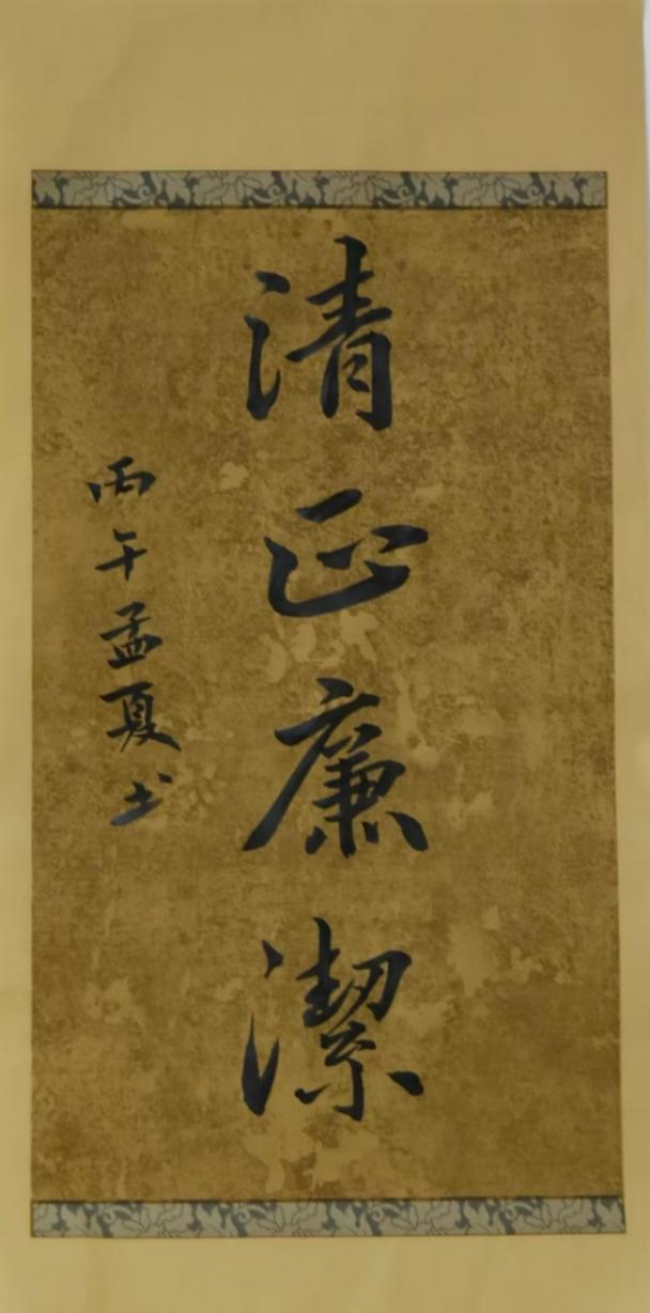 清正廉潔
丙午孟夏